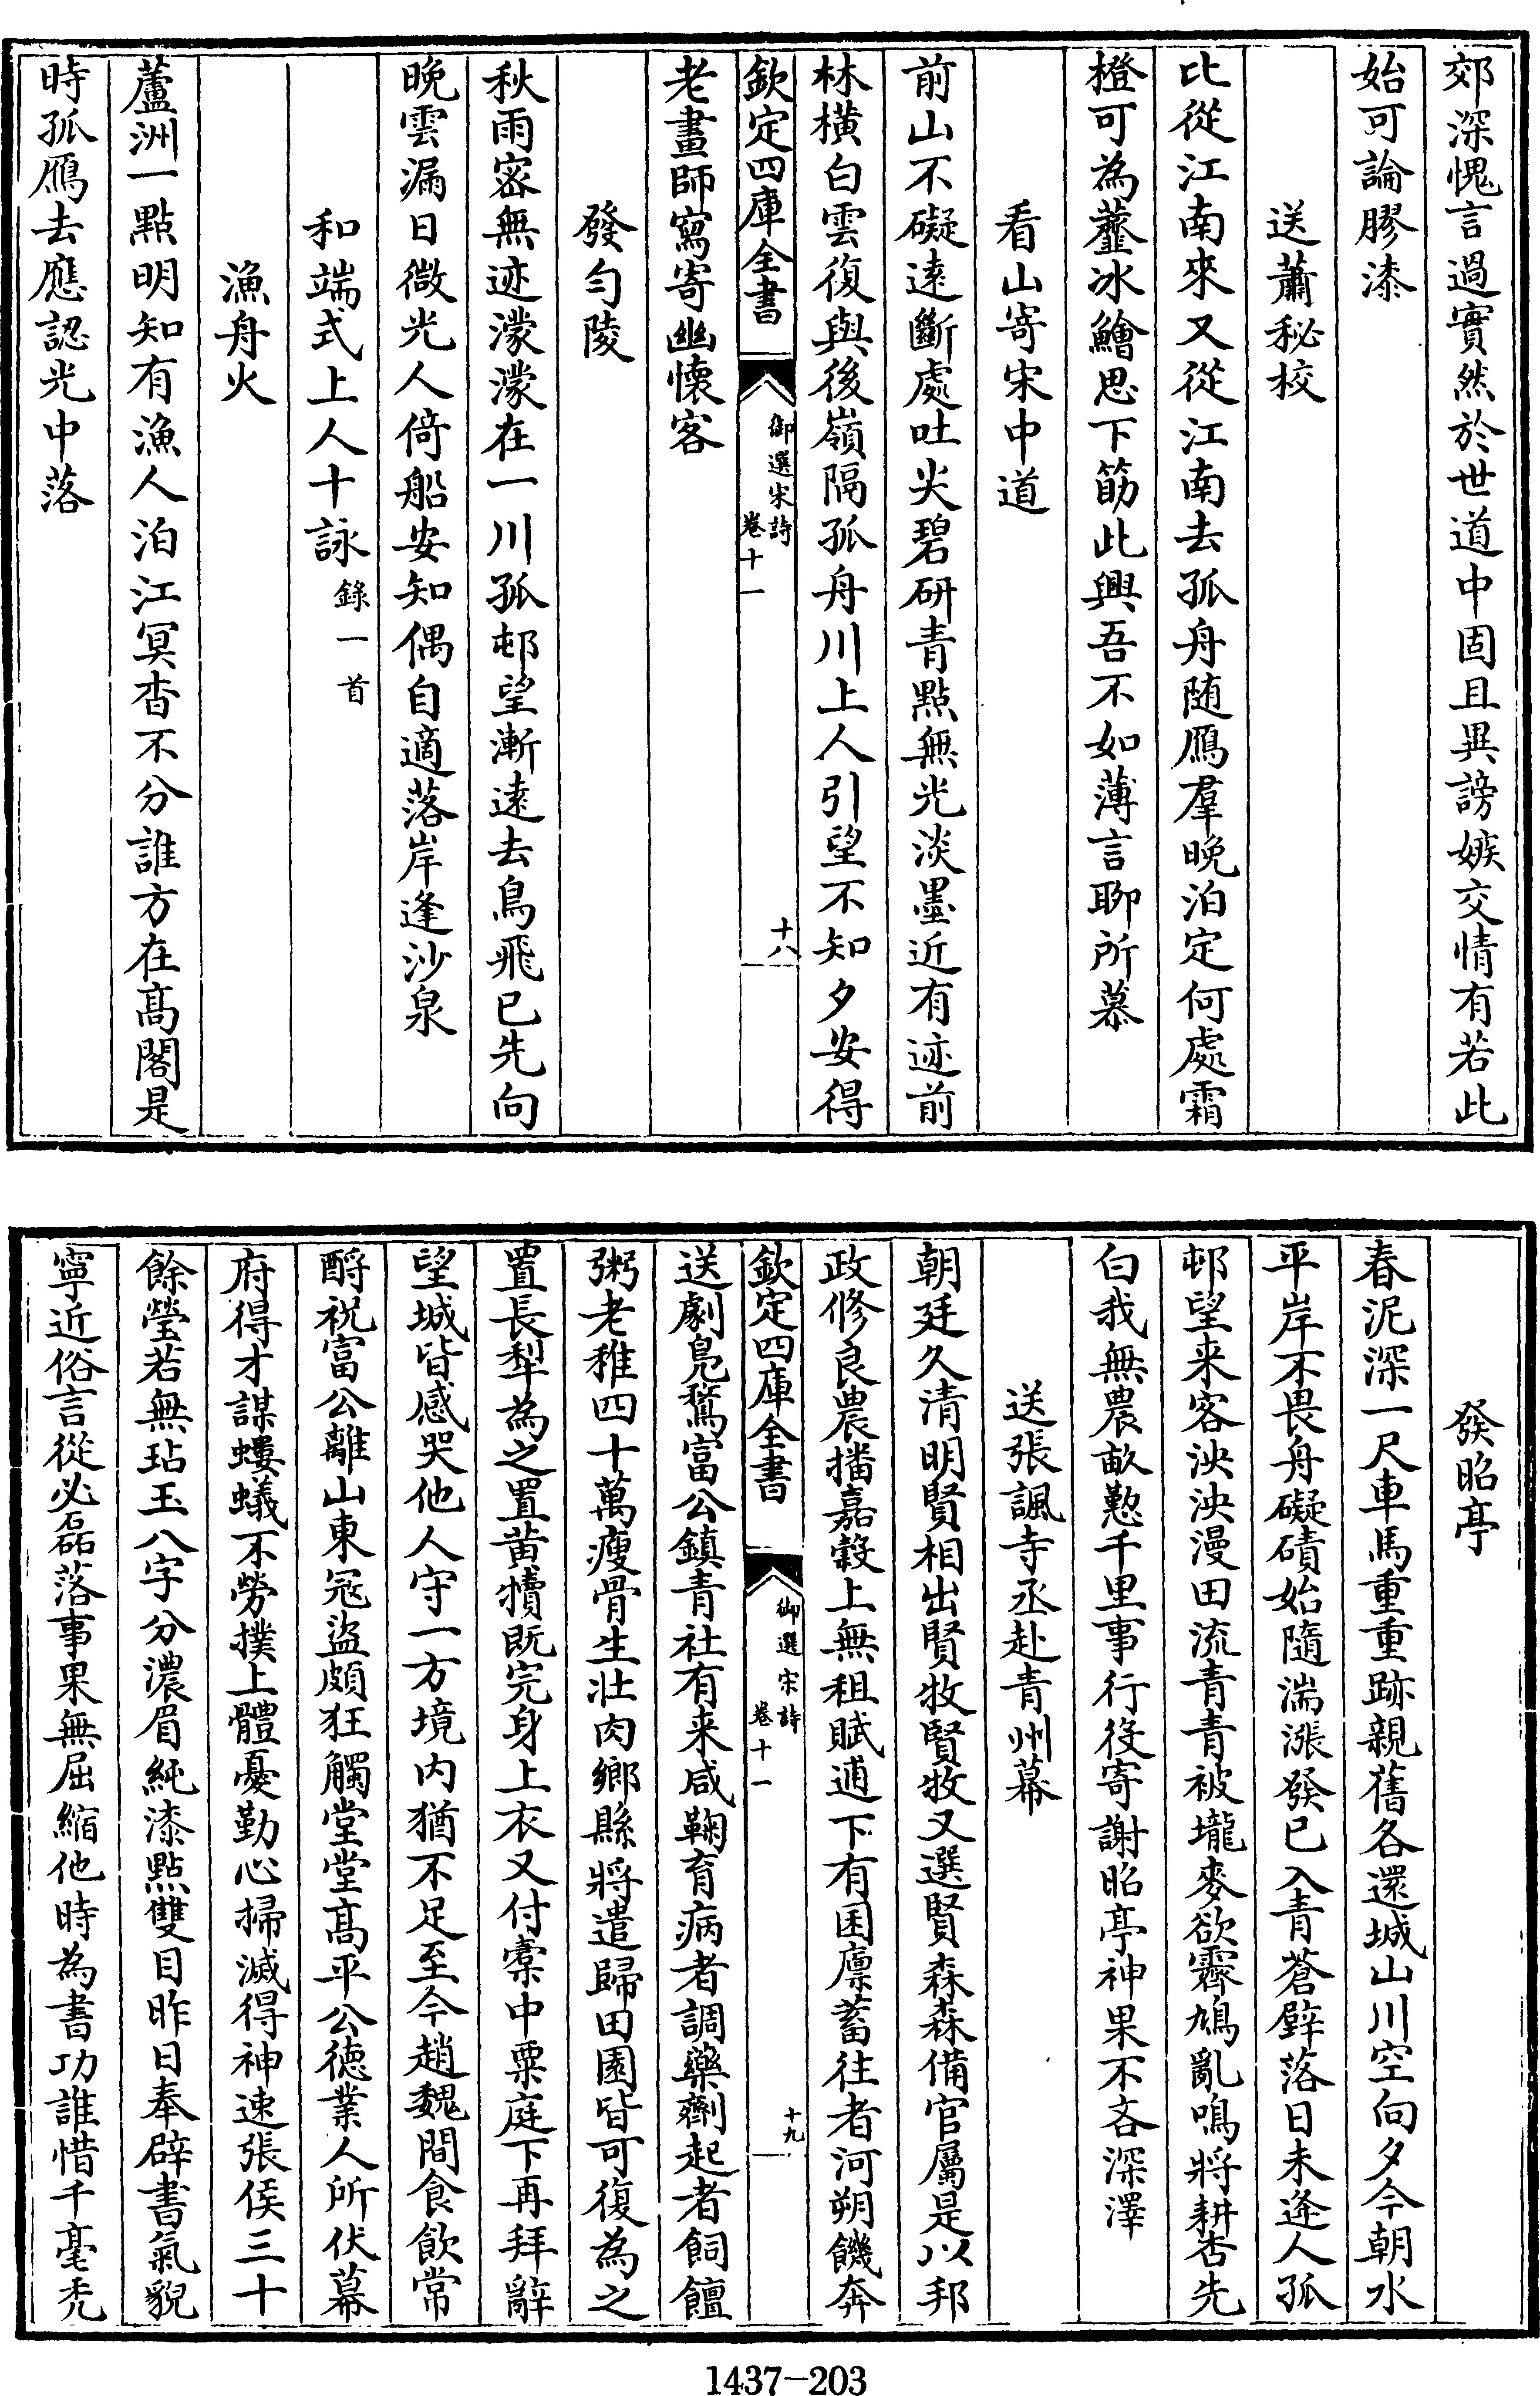 郊深愧言過實然於世道中固且異謗嫉交情有若此
始可論膠漆
送蕭秘校
比從江南來又從江南去孤舟随鴈羣晚泊定何處霜
橙可為虀冰鱠思下筯此興吾不如薄言聊所慕
看山寄宋中道
前山不礙逺斷處吐尖碧研青點無光淡墨近有迹前
林横白雲復與後嶺隔孤舟川上人引望不知夕安得
欽定四庫全書
御選宋詩
卷十一
十八
老畫師寫寄幽懷客
發勻陵
秋雨宻無迹濛濛在一川孤邨望漸逺去鳥飛已先向
晚雲漏日微光人倚船安知偶自適落岸逢沙泉
和端式上人十詠 錄一首
漁舟火
蘆洲一點明知有漁人泊江冥杳不分誰方在髙閣是
時孤鴈去應認光中落
發昭亭
春泥深一尺車馬重重跡親舊各還城山川空向夕今朝水
平岸不畏舟礙磧始隨湍漲發已入青蒼壁落日未逢人孤
邨望来客泱泱漫田流青青被壠麥欲霽鳩亂鳴將耕杏先
白我無農畝懃千里事行役寄謝昭亭神果不吝深澤
送張諷寺丞赴青州幕
朝廷久清明賢相出賢牧賢牧又選賢森森備官屬是以邦
政修良農播嘉穀上無租賦逋下有囷廪蓄往者河朔饑奔
欽定四庫全書
御選宋詩
卷十一
十九
送劇鳬鶩富公鎮青社有来咸鞠育病者調藥劑起者飼饘
粥老稚四十萬瘦骨生壮肉鄉縣將遣歸田園皆可復為之
置長犁為之置黄犢既完身上衣又付橐中粟庭下再拜辭
望城皆感哭他人守一方境内猶不足至今趙魏間食飲常
酹祝富公離山東冦盜頗狂觸堂堂髙平公徳業人所伏幕
府得才謀螻蟻不勞撲上體憂勤心掃滅得神速張侯三十
餘瑩若無玷玉八字分濃眉純漆點雙目昨日奉辟書氣貌
寧近俗言從必磊落事果無屈縮他時為書功誰惜千毫秃
1437-203